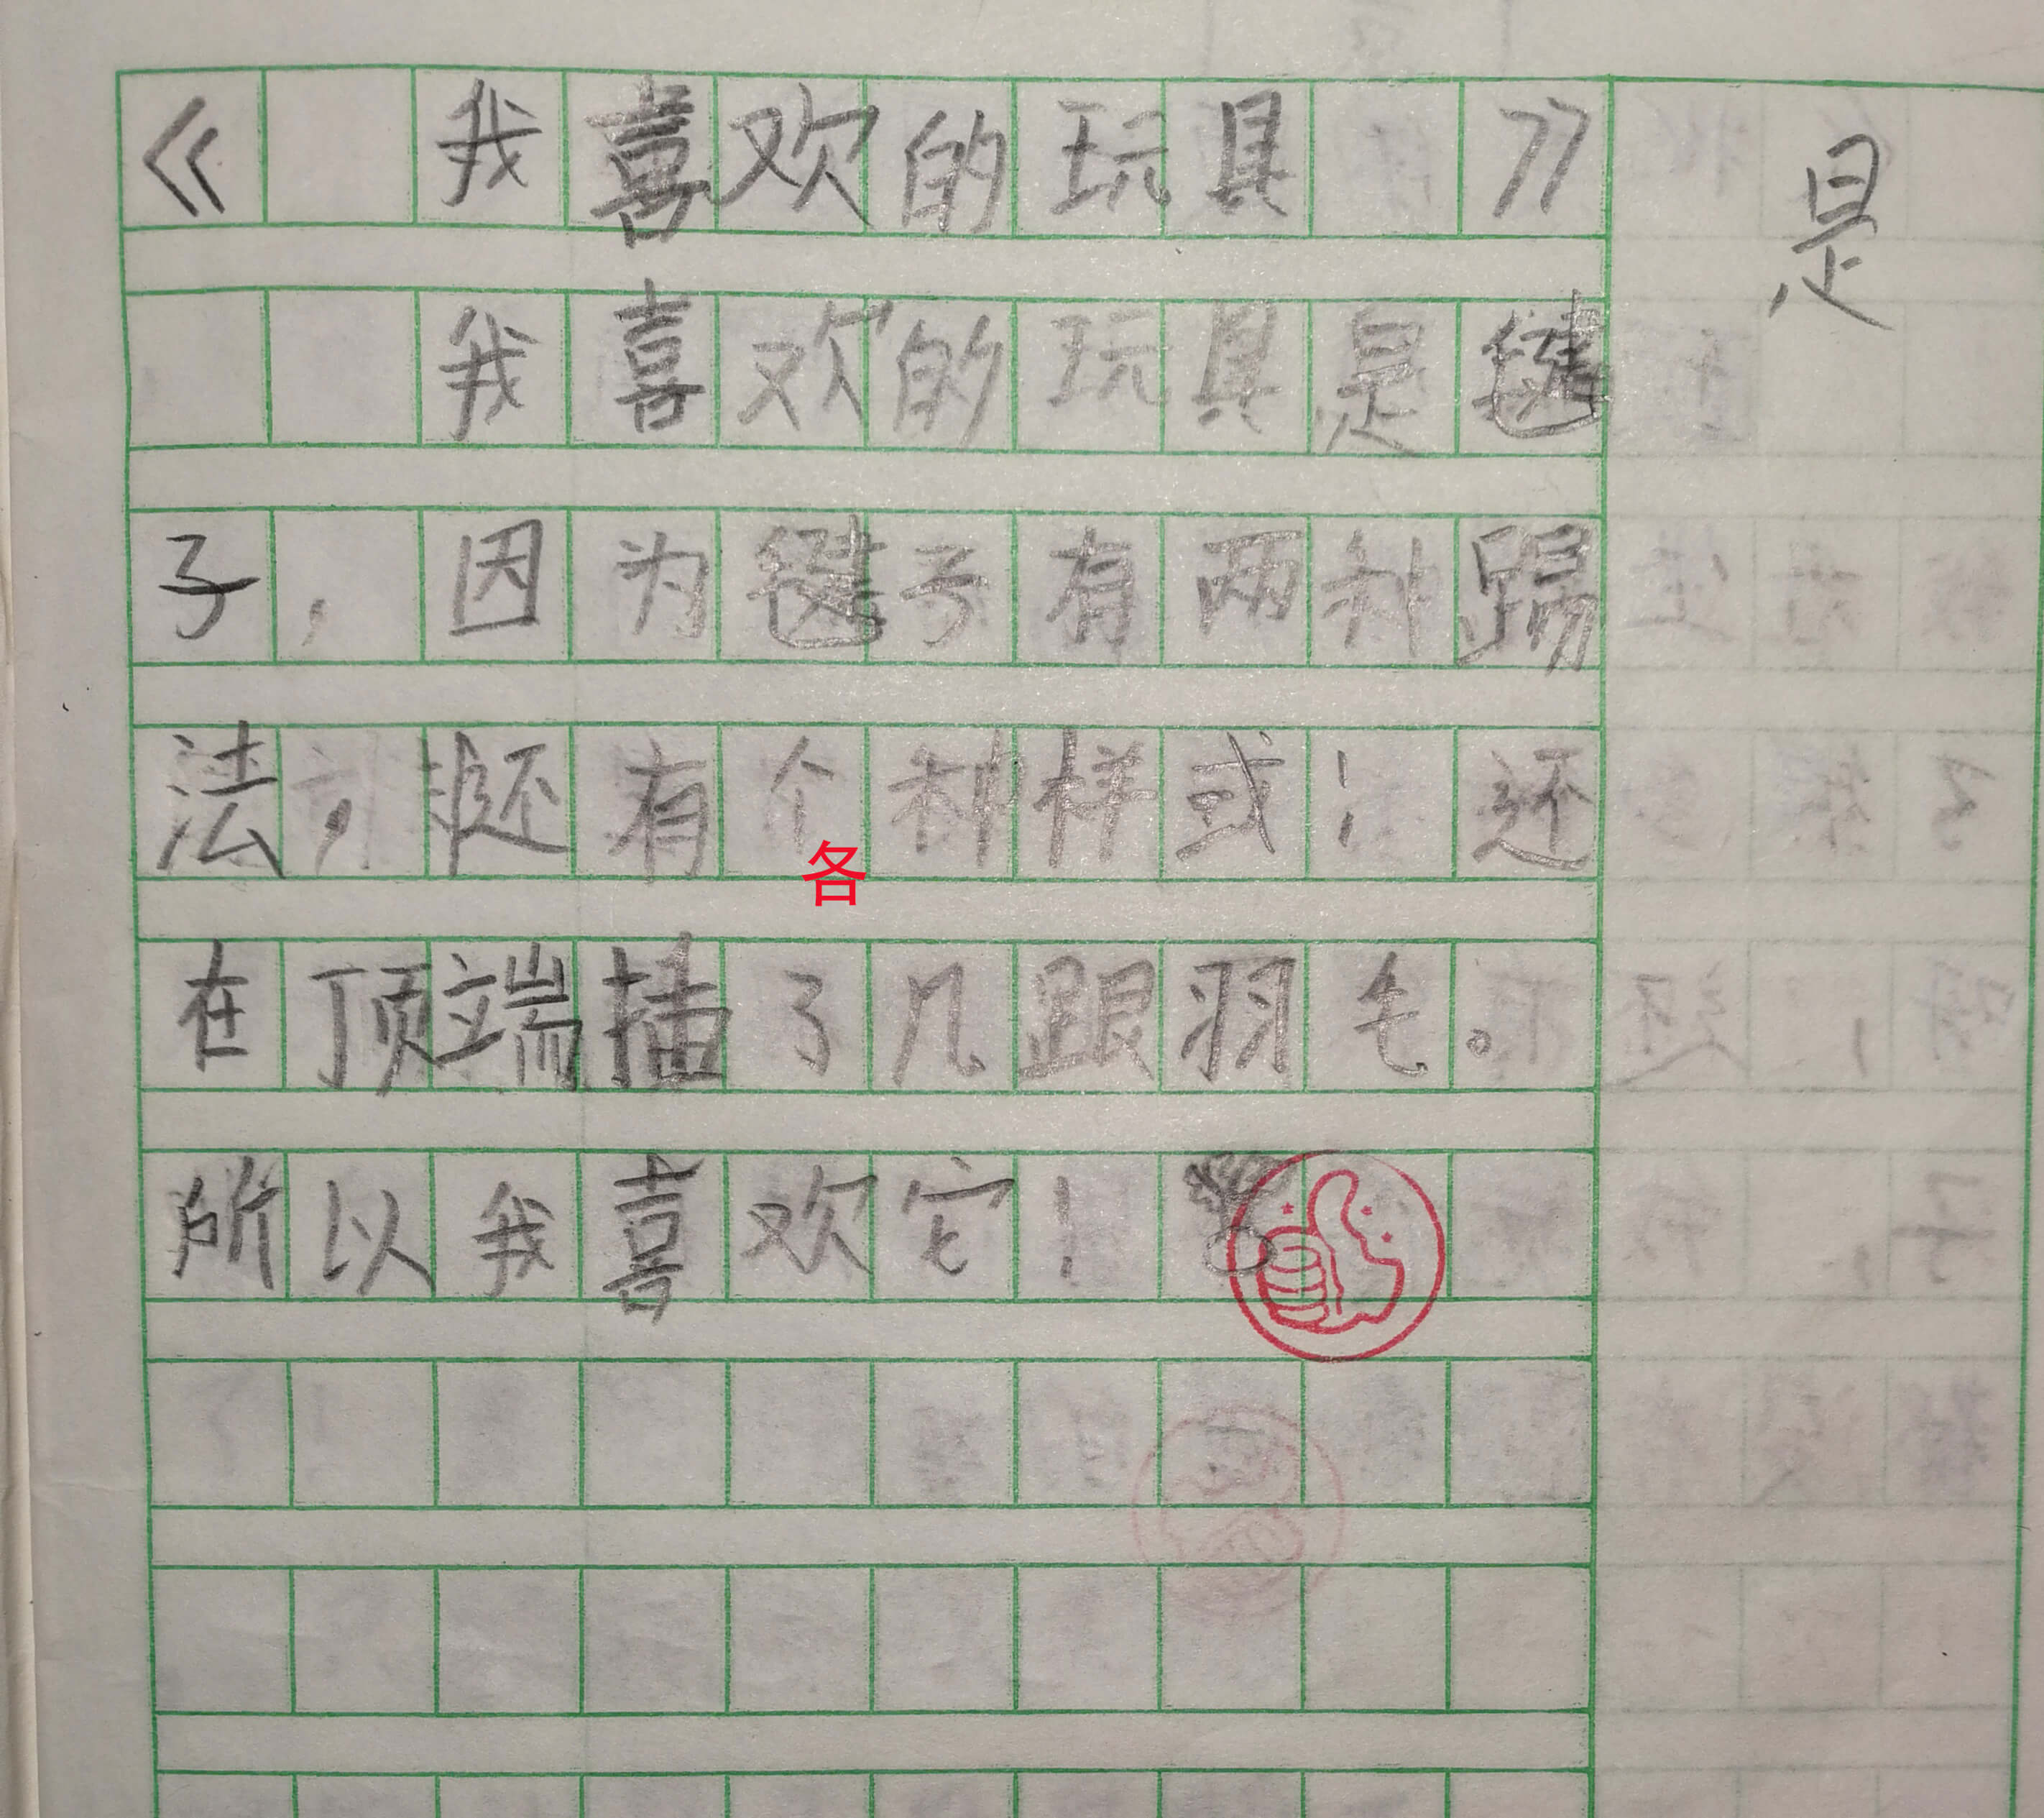 《我喜欢的玩具》
是
我喜欢的玩具是毽
子，因为毽子有两种踢
法，还有个种样或！还
各
在顶端插了几跟羽毛。
所以我喜欢它！